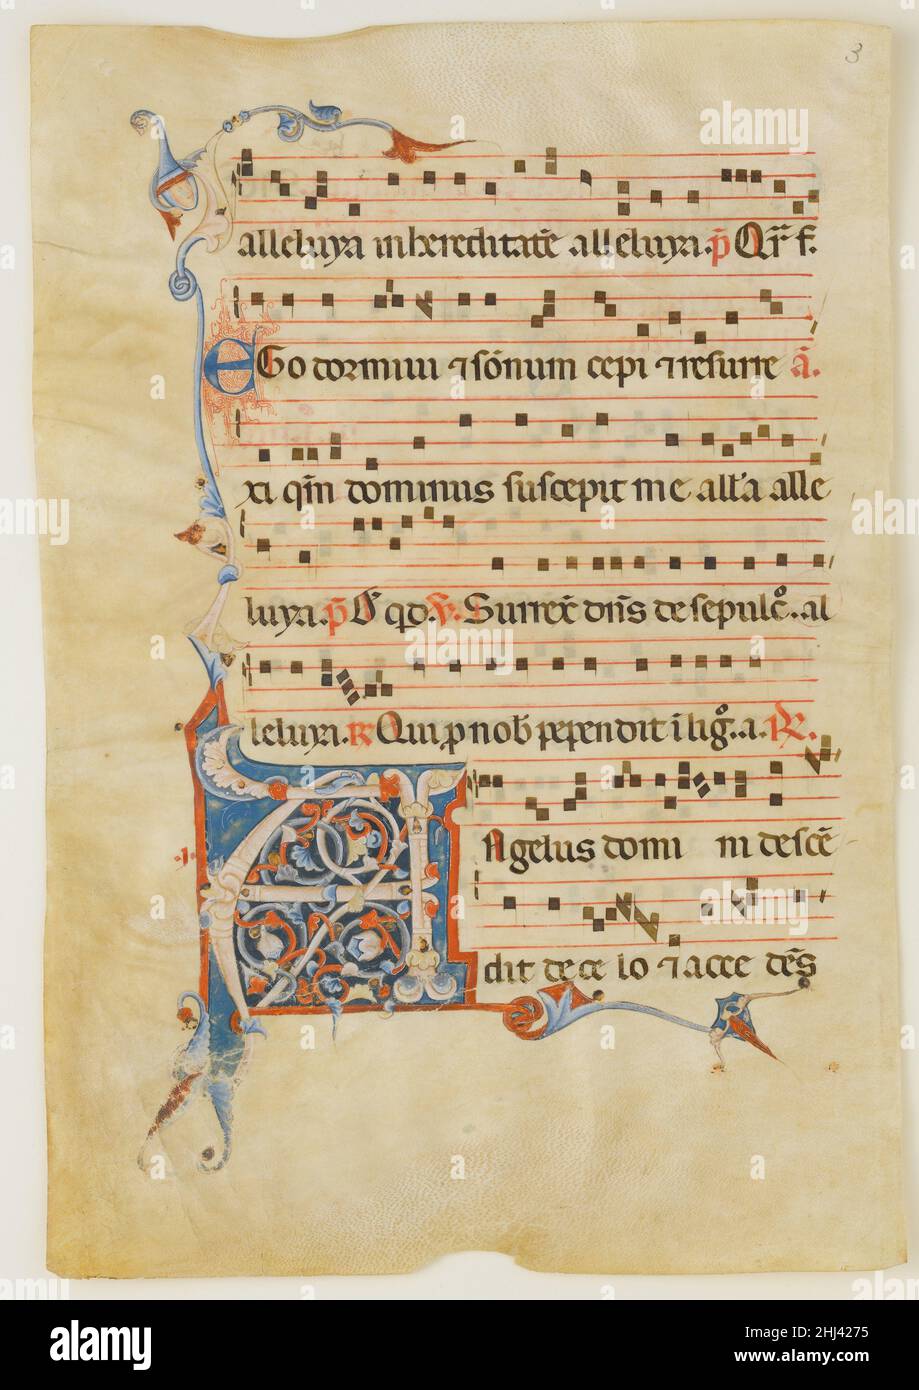 3
alleluya in hereditatē alleluya. p̄ Qr̄ f.
EGo dormiui ⁊ sōnum cepi ⁊ resurre ā.
xi qm̄ dominus suscepit me all'a alle
luya. p̄ qd. ℣. Surrex̄ dn̄s de sepulcͦ. al
leluya. ℟ Qui p nob̄ pependit ī ligͦ. a. ℟.
.1.
Angelus domi ni descē
dit de ce lo ⁊ acce dēs
alamy
Image ID: 2HJ4275
www.alamy.com